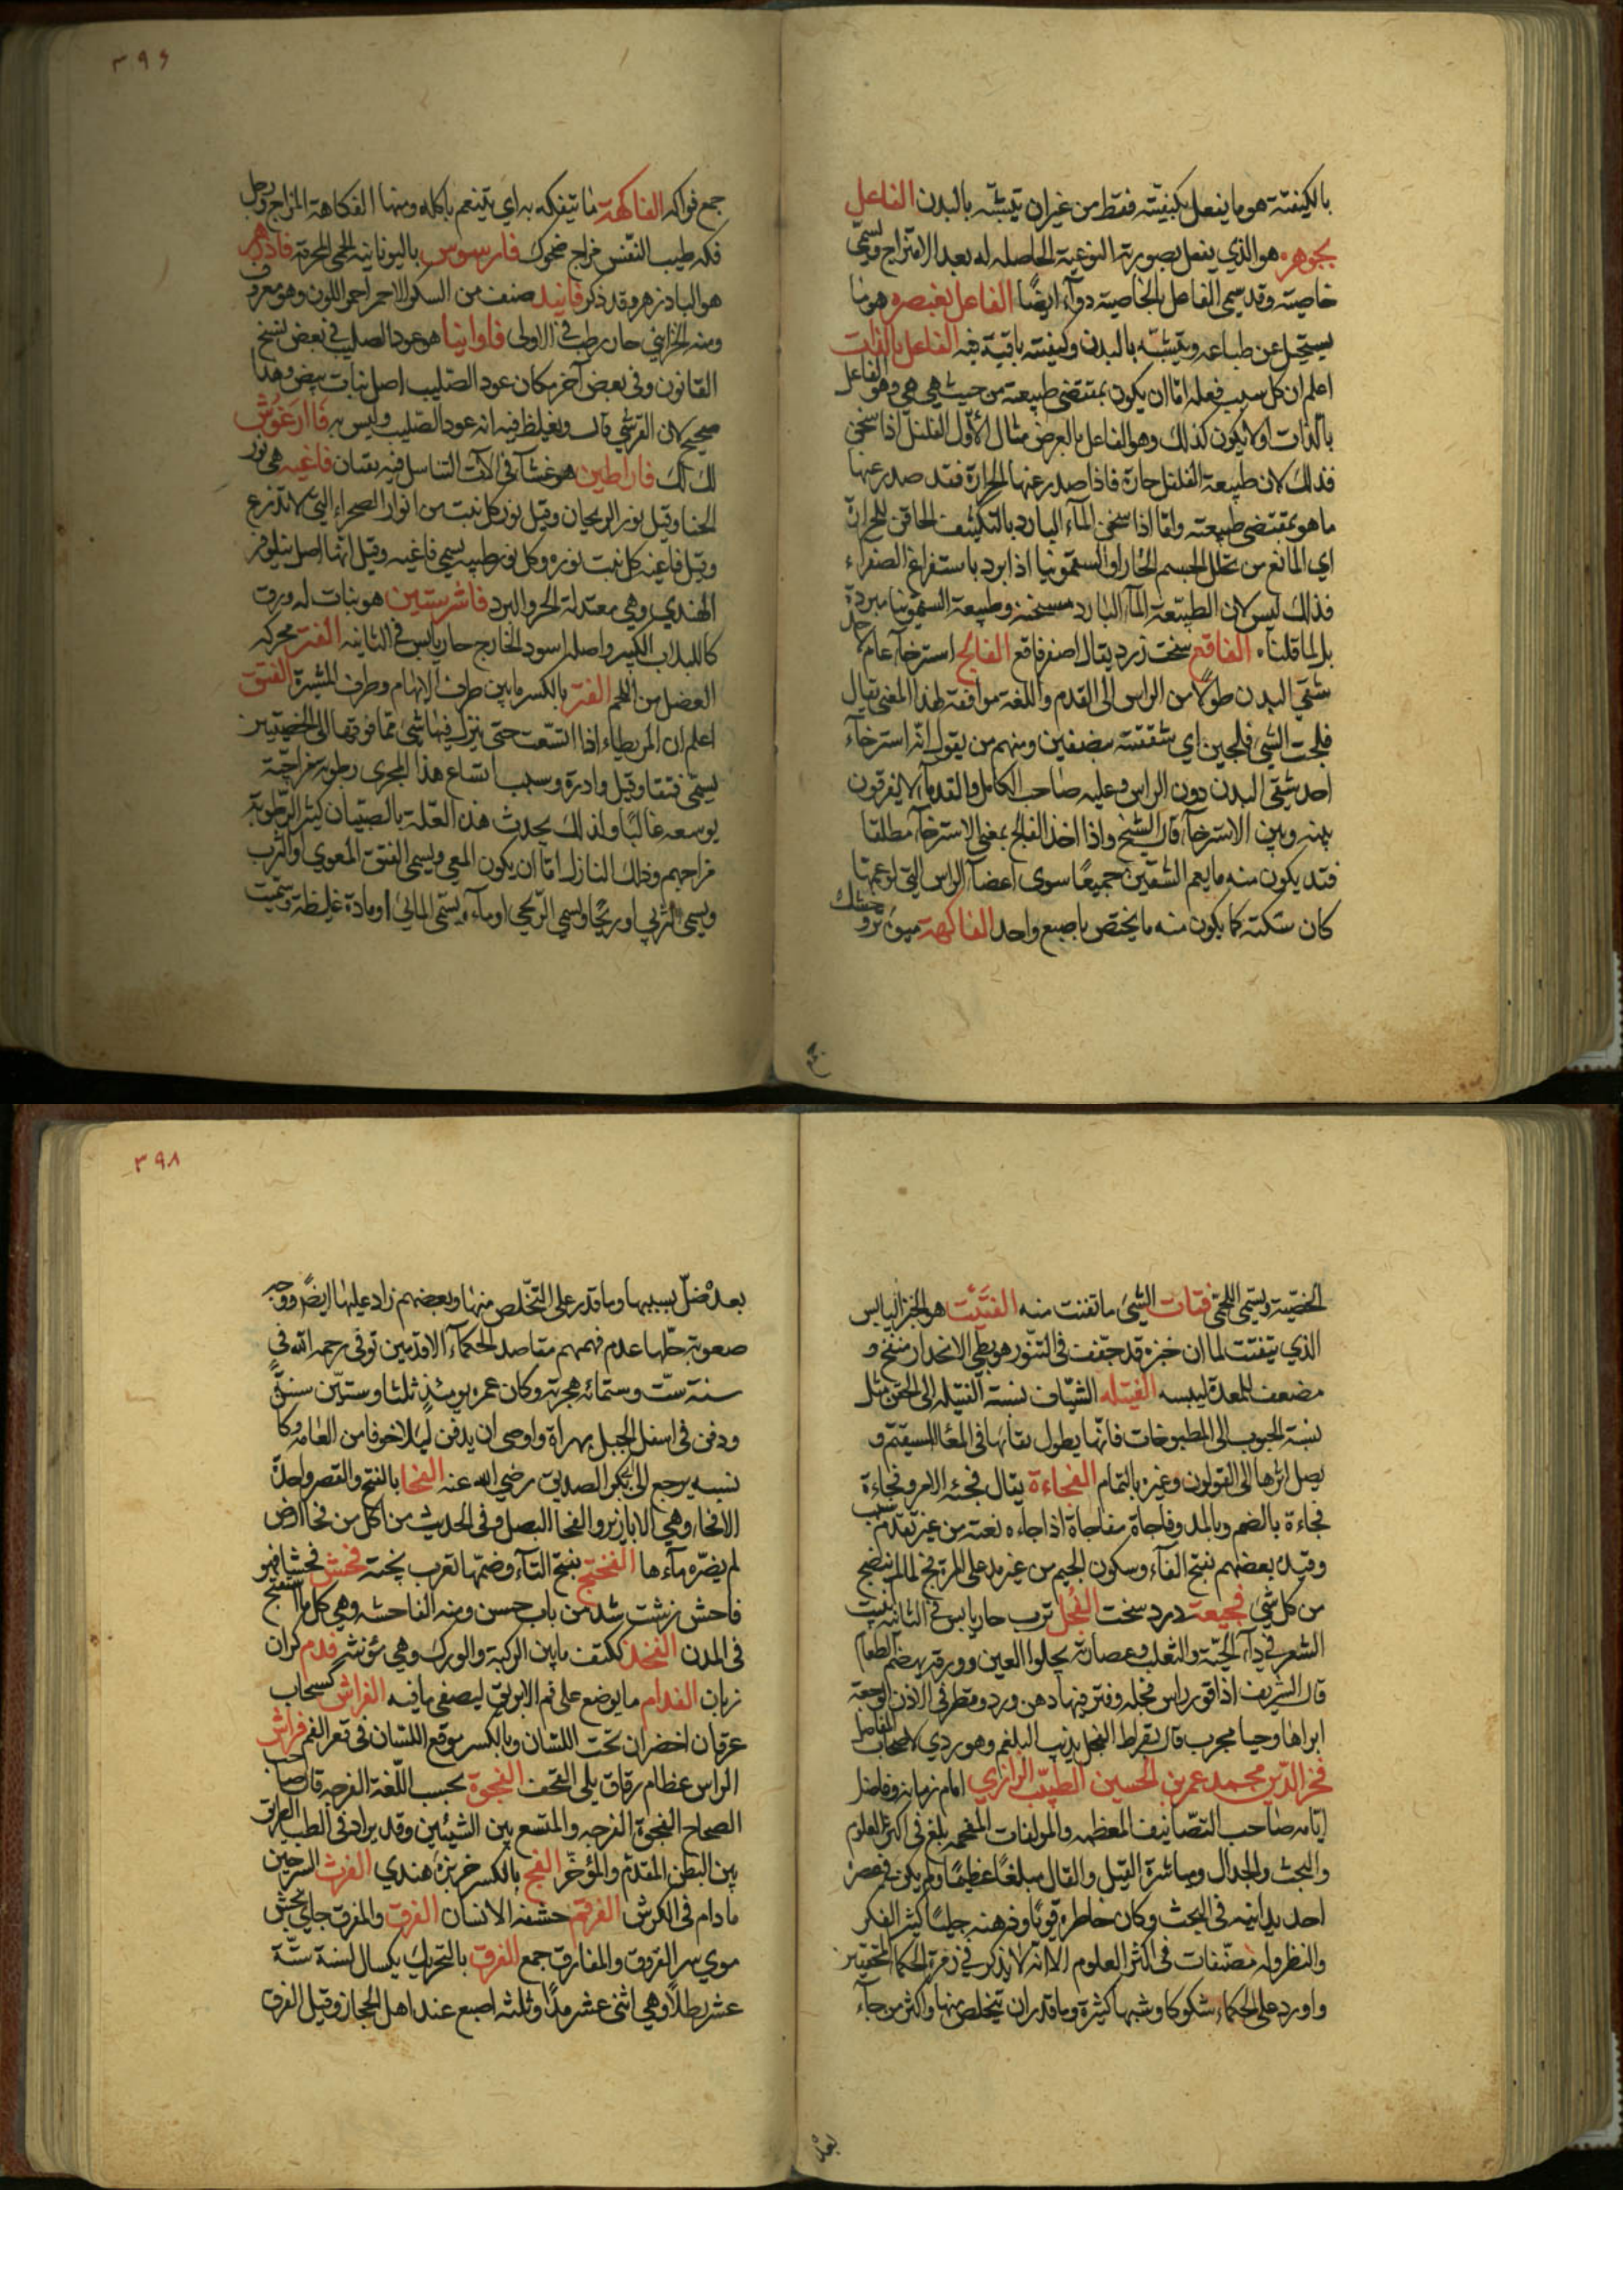 بالكيفية هو ما يفعل بكيفيته فقط من غير ان يتشبه بالبدن الفاعل
بجوهره هو الذي يفعل بصورته النوعية الحاصله له بعد الامتزاج ويسمى
خاصيته وقد يسمى الفاعل بالخاصية دوآء ايضًا الفاعل بعنصره هو ما
يستحيل عن طباعه ويتشبه بالبدن وكيفيته باقية فيه الفاعل بالذات
اعلم ان كل سبب فعله امّا ان يكون بمقتضى طبيعته من حيث هي هي وهو الفاعل
بالذات او لا يكون كذلك وهو الفاعل بالعرض مثال الأوّل الفلفل اذا سخن
فذلك لان طبيعة الفلفل حارة فاذا صدر عنها الحرارة فقد صدر عنها
ما هو بمقتضى طبيعته وامّا اذا سخن المآء البارد بالتكثيف الحاقن للحرارة
اي المانع من تحلل الجسم الحار او السقمونيا اذا برد باستفراغ الصفراء
فذلك ليس لان الطبيعة المآء البارد مسخنة وطبيعة السقمونيا مبردة
بل لما قلناه الفاقع سخت زرد يقال اصفر فاقع الفالج استرخآء عام لاحد
شقي البدن طولًا من الراس الى القدم واللغة موافقة لهذا المعنى يقال
فلجت الشئ فلجين اي شققته نصفين ومنهم من يقول انّه استرخآء
احد شقي البدن دون الراس وعليه صاحب الكامل والقدمآء لا يفرقون
بينه وبين الاسترخآء قال الشيخ واذا اخذ الفالج بمعنى الاسترخآء مطلقا
فقد يكون منه ما يعم الشقين جميعًا سوى اعضآء الراس التي لو عمتها
كان سكتة كما يكون منه ما يختص باصبع واحد الفاكهة ميوۀ تر و خشك
جمع
٣٩٦
جمع فواكه الفاكهة ما يتفكه به اي يتنعم باكله ومنها الفكاهة المزاج ورجل
فكه طيب النفس مزاج ضحوك فارسوس باليونانية الحمى المحرقة فاذزهر
هو البادزهر وقد ذكر فانيد صنف من السكر الاحمر احمر اللون وهو معروف
ومنه الخزايني حار رطب في الاولى فاوانيا هو عود الصليب في بعض نسخ
القانون وفي بعض آخر مكان عود الصليب اصل نبات بيض وهذا
صحيح لان القرشي قال ويغلظ فيه انه عود الصليب وليس به فاارغوش
لك لك فاراطين هو غشآء في آلات التناسل فيه بقسان فاغيه هي نور
الحنا وقيل نور الريحان وقيل نور كل نبت من انوار الصحراء التي لا تزرع
وقيل فاغية كل نبت نوره وكل نور طيبه يسمى فاغيه وقيل انها اصل نيلوفر
الهندي وهي معتدلة الحر والبرد فاشرستين هو نبات له ورق
كاللبلاب الكبير واصله اسود الخارج حار يابس في الثانيه الفتر محركه
العضل من اللحم الفتر بالكسر ما بين طرف الابهام وطرف المشيرة الفتق
اعلم ان المريطاء اذا اتسعت حتى ينزل فيها شئ مما فوقها الى الخصيتين
يسمى فتقا وقيل وادرة وسبب اتساع هذا المجرى رطوبة مزاجية
يوسعه غالبًا ولذلك يحدث هذه العلّة بالصبيان كثير الرطوبة
مزاجهم وذلك النازل امّا ان يكون المعي ويسمى الفتق المعوي والثرب
ويسمى الثربي او ريحًا ويسمى الريحي او مآء ويسمى المائي او مادة غليظة وسميت
الخصية ويسمى اللحمي فتات الشئ ما تفتت منه الفتيت هو الخبز اليابس
الذي يتفتت لما ان خبزه قد جففت في التنور هو بطي الانحدار منفخ و
مضعف للمعدة ليبسه الفتيله الشياف نسبة الفتيله الى الحقن مثل
نسبة الحبوب الى المطبوخات فانّها يطول بقائها في المعآء المستقيم و
يصل اثرها الى القولون وغيره بالتمام الفجاءة يقال فجئه الامر وفجاءة
فجاءة بالضم وبالمد وفاجاه مفاجاة اذا جاءه بغتة من غير تقدم سبب
وقيده بعضهم بفتح الفآء وسكون الجيم من غير مد على المرة فج لما لم ينضج
من كل شئ فجيعة درد سخت الفجل ترب حار يابس في الثانيه ينبت
الشعر في دآء الحيّة والثعلب وعصارته يجلو العين وورقه يهضم الطعام
قال الشريف اذا قور راس فجله وفتر فيها دهن ورد وقطر في الاذن الوجعة
ابراها وحيا مجرب قال بقراط الفجل يذيب البلغم وهو ردي لاصحاب المفاصل
فخر الدّين محمد عمر بن الحسين الطبيب الرازي امام زمانه وفاضل
ايّامه صاحب التصانيف المعظمه والمولفات المفخمه بلغ في اكثر العلوم
والبحث والجدال ومباشرة القيل والقال مبلغًا عظيمًا ولم يكن في عصره
احد يدانيه في البحث وكان خاطره قويًا وذهنه جليسًا كثير الفكر
والنظر وله مصنّفات في اكثر العلوم الا انّه لا يذكر في زمرة الحكمآء المحققين
واورد على الحكماء شكوكا وشبها كثيرة وما قدر ان يتخلص منها واكثر من جآء
بعده
٣٩٨
بعده ضلّ بسببها وما قدر على التخلّص منها وبعضهم زاد عليها ايضًا ووجه
صعوبة حلّها عدم فهمهم مقاصد الحكمآء الاقدمين توفي رحمه الله في
سنة ستّ وستمائه هجرية وكان عمره يومئذٍ ثلثا وستّين سنة
ودفن في اسفل الجبل بهراة واوصى ان يدفن ليلا خوفا من العامه وكا
نسبه يرجع الى ابي بكر الصديق رضي الله عنه الفحا بالفتح والقصر واحدة
الافحاء وهي الابازير والفحا البصل وفي الحديث من اكل من فحا ارض
لم يضرّه مآءها الفختج بفتح التآء وضمّها تعرب پخته فحش فحشا فهو
فاحش زشت شد من باب حسن ومنه الفاحشه وهي كل ما استقبح
في المدن الفخذ ككتف ما بين الركبة والورك وهي مؤنثه فدم گران
زبان الفدام ما يوضع على فم الابريق ليصفى ما فيه الفراش كسحاب
عرقان اخضران تحت اللسان وبالكسر موقع اللسان في قعر الفم فراش
الراس عظام رقاق يلي القحف الفجوة بحسب اللّغة الفرجه قال صاحب
الصحاح الفجوة الفرجه والمتسع بين الشيئين وقد يراد في الطب الطريق
بين البطن المقدم والمؤخّر الفج بالكسر خربزۀ هندي الفرث السرجين
ما دام في الكرش الفرقم حشفه الانسان الفرق والمفرق جاي بخش
موي سر الفروق والمفارق جمع الفرق بالتحريك مكيال لسنة ستّة
عشر رطلًا وهي اثنى عشر مدًا وثلثه اصبع عند اهل الحجاز وقيل الفرق